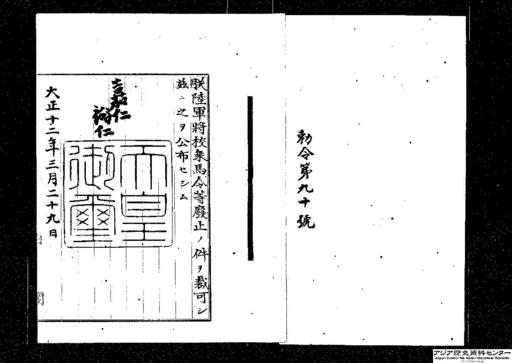 勅令第九十號
朕陸軍將校乘馬令等廢止ノ件ヲ裁可シ
茲ニ之ヲ公布セシム
嘉仁
裕仁
天皇
御璽
大正十二年三月二十九日
アジア歴史資料センター
Japan Center for Asian Historical Records